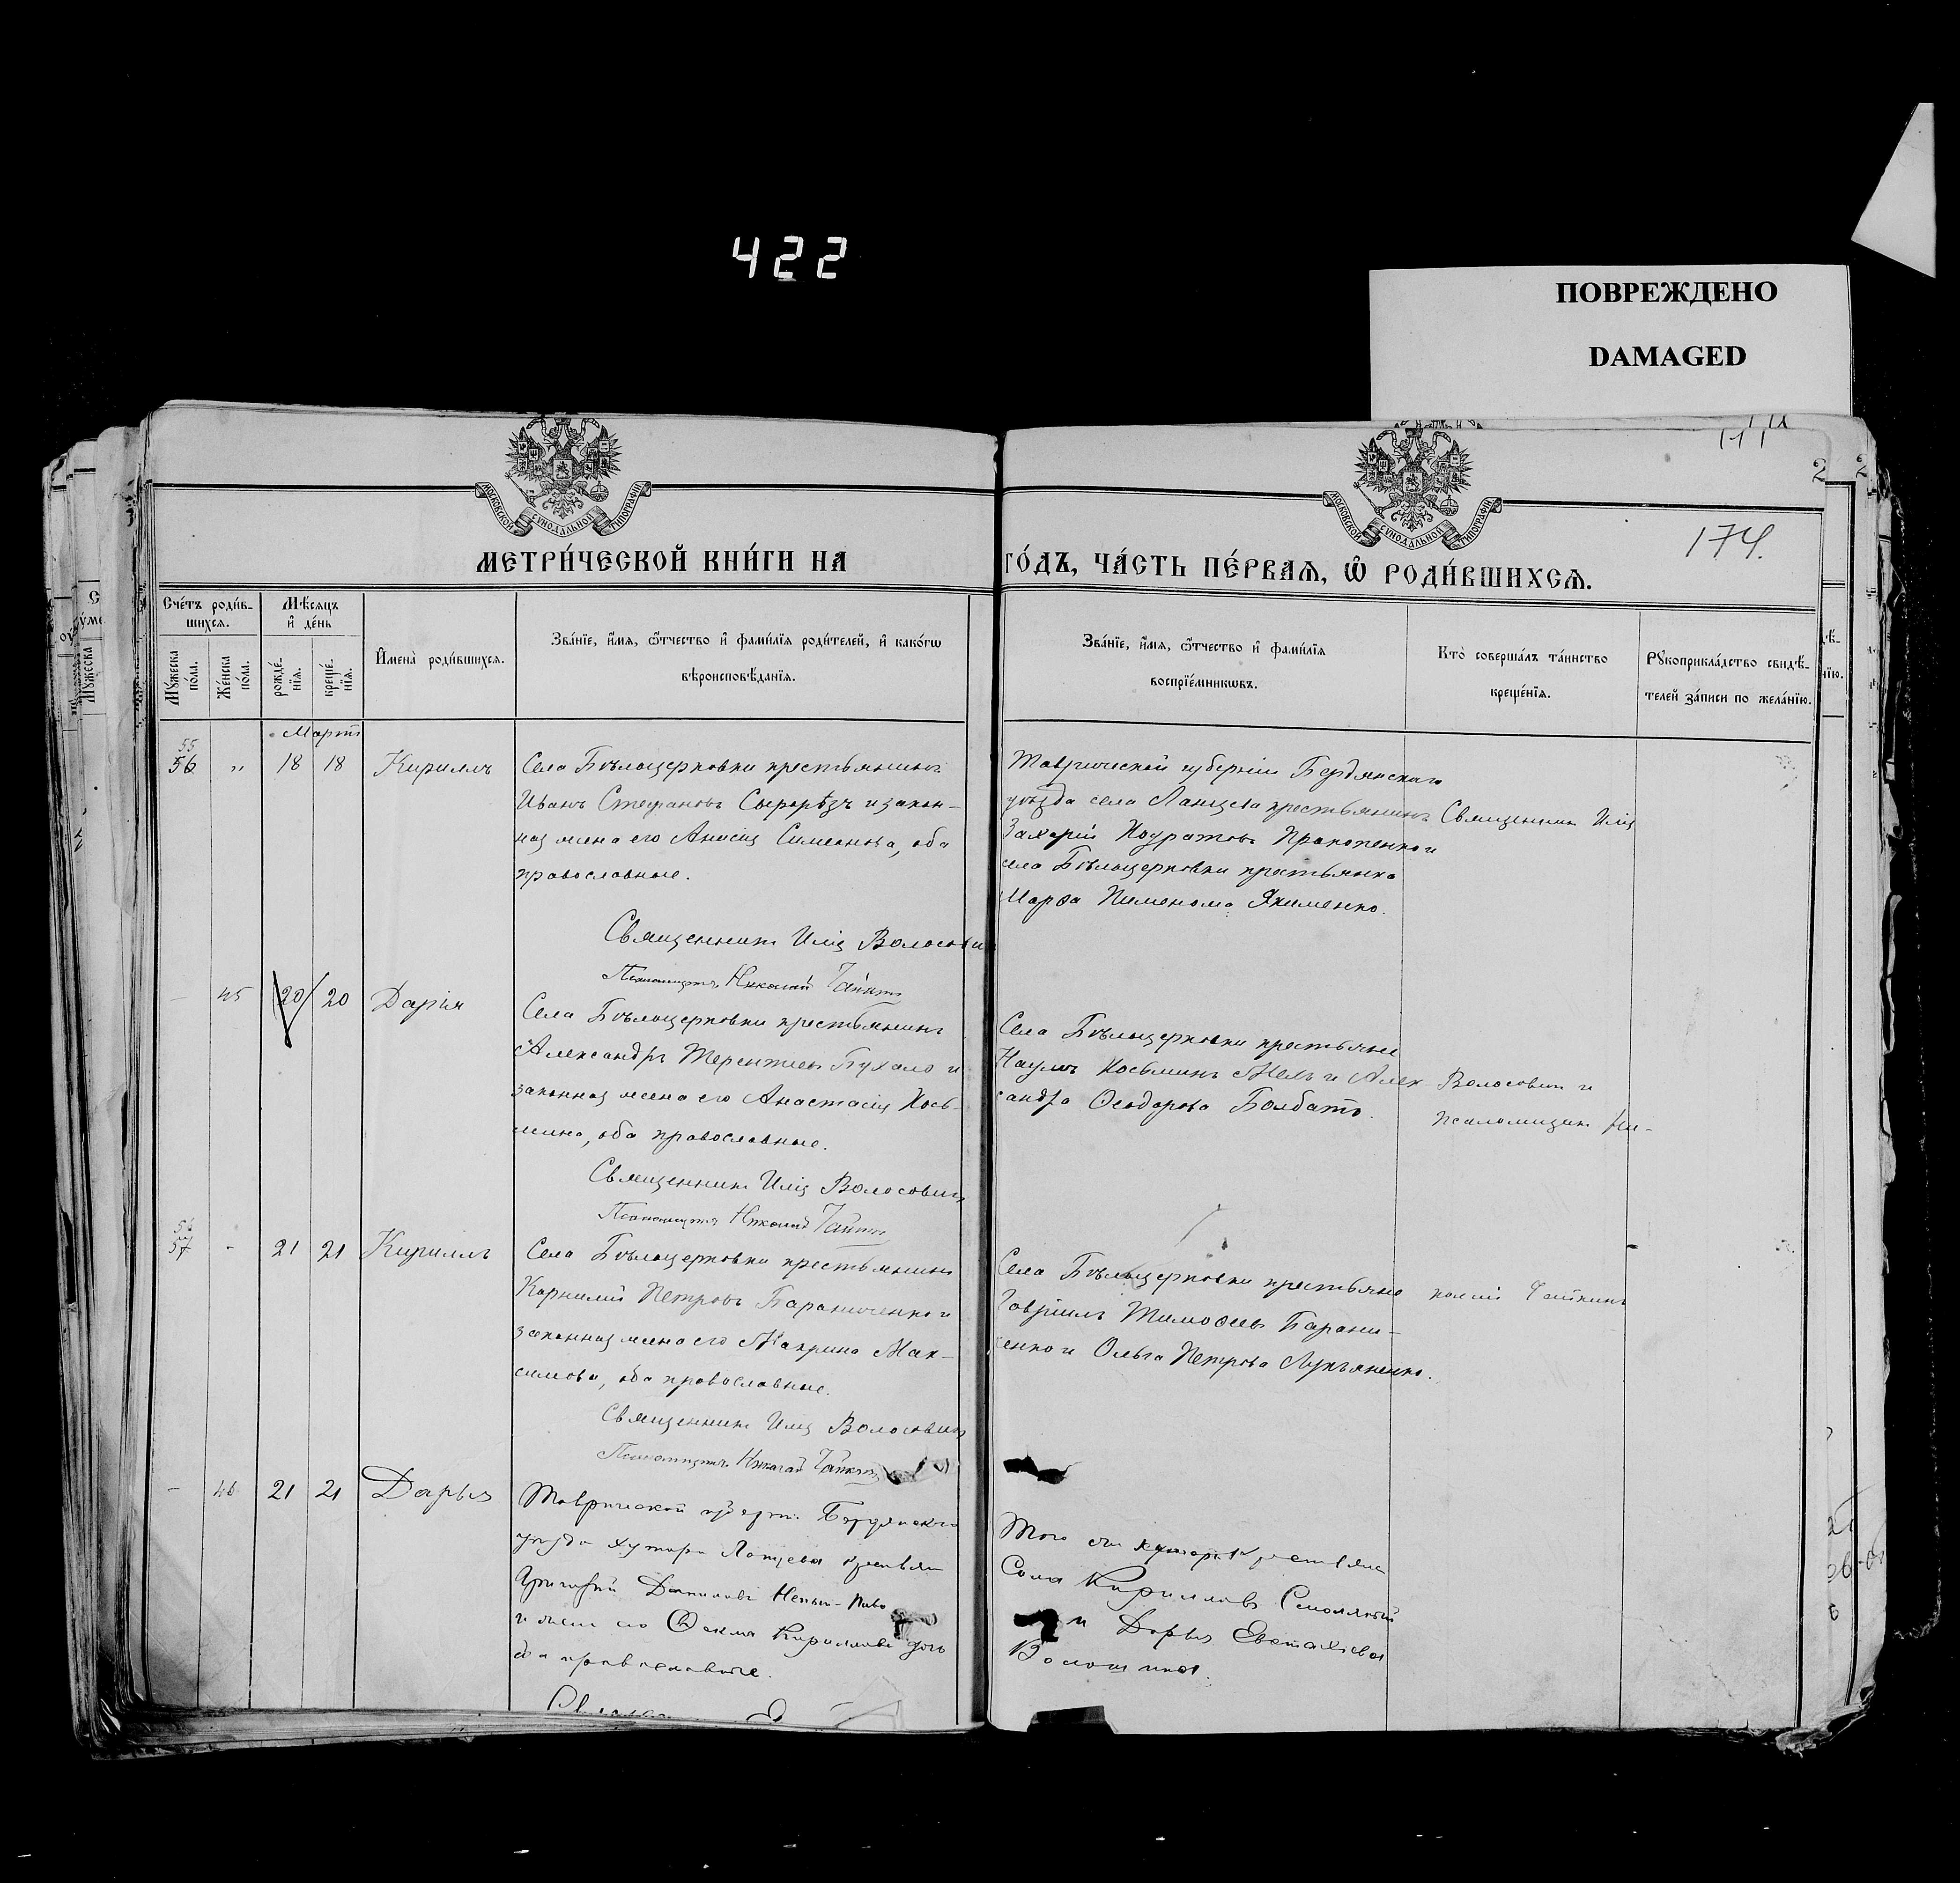 422
ПОВРЕЖДЕНО
DAMAGED
МОСКОВСКОЙ СѴНОДАЛЬНОЙ ТИПОГРАФІИ
МОСКОВСКОЙ СѴНОДАЛЬНОЙ ТИПОГРАФІИ
174.
МЕТРИ́ЧЕСКОЙ КНИ́ГИ НА
ГО́ДЪ, ЧА́СТЬ ПЕ́РВАЯ, Ѿ РОДИ́ВШИХСЯ.
Сче́тъ роди́в-
шихся.
Мѣсяцъ
и҆ де́нь
Мꙋ́жеска
по́ла.
Же́нска
по́ла.
рожде́-
нїя.
креще́-
нїя.
И҆мена̀ роди́вшихся.
Зва́нїе, и҆́мя, ѻ҆́тчество и҆ фами́лїя роди́телей, и҆ како́гѡ
вѣроисповѣ́данїя.
Зва́нїе, и҆́мя, ѻ҆́тчество и҆ фами́лїя
воспрїе́мникѡвъ.
Кто̀ соверша́лъ та́инство
креще́нїя.
Рꙋкоприкла́дство свидѣ́-
телей за́писи по жела́нїю.
Мартъ
55
56 " 18 18 Кириллъ
Села Бѣлоцерковки крестьянинъ
Иванъ Стефановъ Сыроръзъ и закон-
ная жена его Анисія Симеонова, оба
православные.
Священникъ Илія Волосовичъ
Псаломщикъ Николай
Таврической губерніи Бердянскаго
уѣзда села крестьянинъ
Захарій Прокопенко и
села Бѣлоцерковки крестьянка
Марѳа Пименова Якименко.
Священникъ Илія
- 45 20 20 Дарія
Села Бѣлоцерковки крестьянинъ
Александръ Терентіевъ Пухало и
законная жена его Анастасія Кось-
мина, оба православные.
Священникъ Илія Волосовичъ
Псаломщикъ Николай
Села Бѣлоцерковки крестьяне
Наумъ Косьминъ и Алек
сандра Ѳеодорова
Волосовичъ и
псаломщикъ Ни-
56
57 - 21 21 Кириллъ
Села Бѣлоцерковки крестьянинъ
Корнилій Петровъ Бараниченко и
законная жена его Макрина Мак-
симова, оба православные.
Священникъ Илія Волосовичъ
Псаломщикъ Николай
Села Бѣлоцерковки крестьяне
Гавріилъ Тимоѳеевъ Барани-
ченко и Ольга Петрова Лукьяненко.
колай
- 46 21 21 Дарья
Таврической губерн. Бердянскаго
уѣзда хутора
Григорій Даниловъ
и жена его Ѳекла Кириллова
оба православные.
Того же хутора крестьяне
Кирилловъ
и Дарья Евстафіева